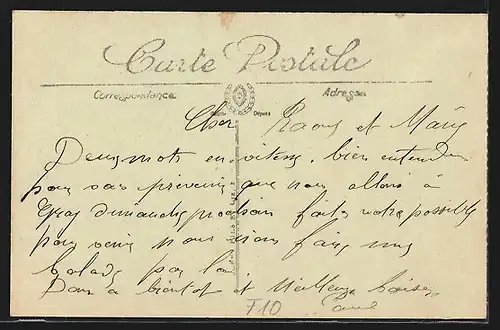 Carte Postale
Correspondance Adresse
Cher Raoul et Marie
Deux mots en vitesse, bien entendu
pour vous prévenir que nous allons à
Gray dimanche prochain faites votre possible
pour venir nous irons faire une
balade par là
Donc à bientôt et Meilleurs baisers
F10